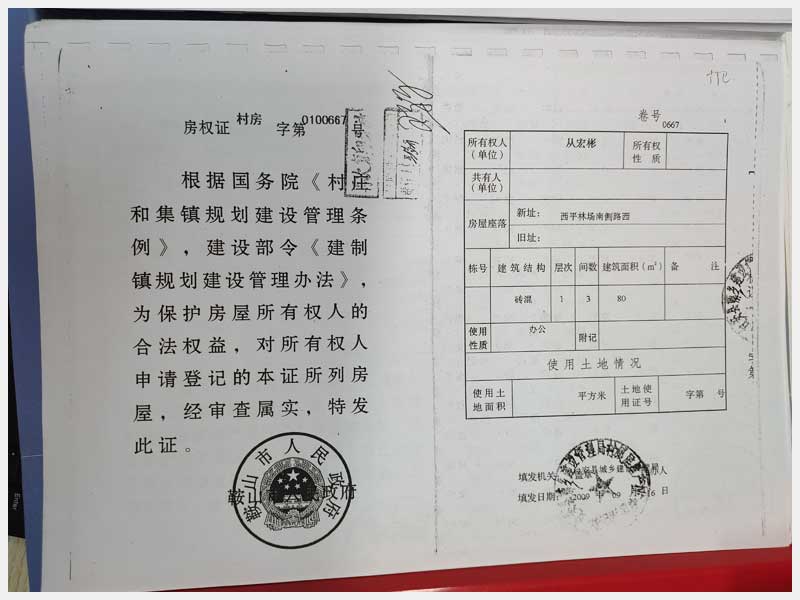 房权证 村房 字第 0100667 号
根据国务院《村庄
和集镇规划建设管理条
例》，建设部令《建制
镇规划建设管理办法》，
为保护房屋所有权人的
合法权益，对所有权人
申请登记的本证所列房
屋，经审查属实，特发
此证。
鞍山市人民政府
鞍山市人民政府
卷号
0667
所有权人（单位） 从宏彬 所有权性质
共有人（单位）
房屋座落 新址： 西平林场南侧路西
旧址：
栋号 建筑结构 层次 间数 建筑面积（m²） 备注
砖混 1 3 80
使用性质 办公 附记
使用土地情况
使用土地面积 平方米 土地使用证号 字第 号
填发机关
填发日期: 2009 年 09 月 16 日
Enter